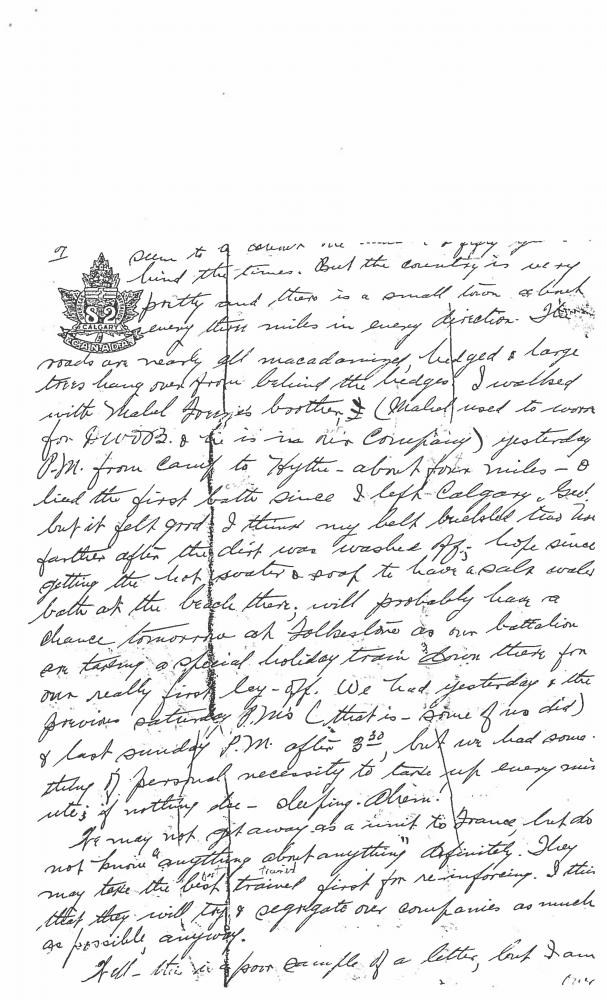 I
seem to a
hind the times. But the country is very
82
CALGARY
CANADA
pretty and there is a small town about
every three miles in every direction. The
roads are nearly all macadamized, hedged & large
trees hang over from behind the hedges. I walked
with Mabel brother (Mabel used to work
for & he is in our Company) yesterday
P.M. from camp to Hythe - about four miles - &
had the first bath since I left Calgary. Gee!
but it felt good. I think my belt buckled two
farther after the dirt was washed off; hope since
getting the hot water & soap to have a salt water
bath at the beach there; will probably have a
chance tomorrow at Folkestone as our battalion
are taking a special holiday train down there for
our really first lay-off. We had yesterday & the
previous saturday P.M's (that is - some of us did)
& last sunday P.M. after 3 30, but we had some-
thing of personal necessity to take up every min
ute; if nothing else - sleeping. Ahem!
We may not get away as a unit to France, but do
not know "anything about anything" definitely. They
may take the best trained first for re-inforcing. I think
that they will try & segregate our companies as much
as possible, anyway.
Well - this is a poor sample of a letter, but I am